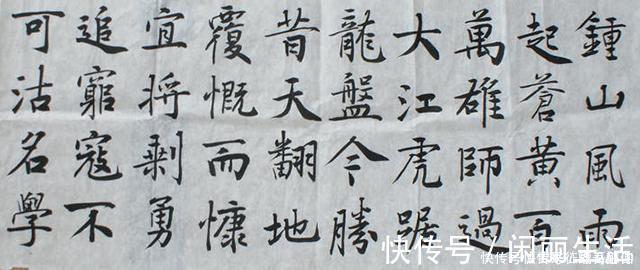 鍾山風雨
起蒼黄百
萬雄師過
大江虎踞
龍盤今勝
昔天翻地
覆慨而慷
宜将剩勇
追窮寇不
可沽名學
快传号 / 闲丽生活